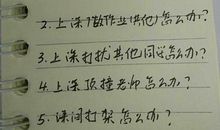 2.上课做作业(其他)怎么办?
3.上课打扰其他同学怎么办?
4.上课顶撞老师怎么办?
5.课间打架怎么办?